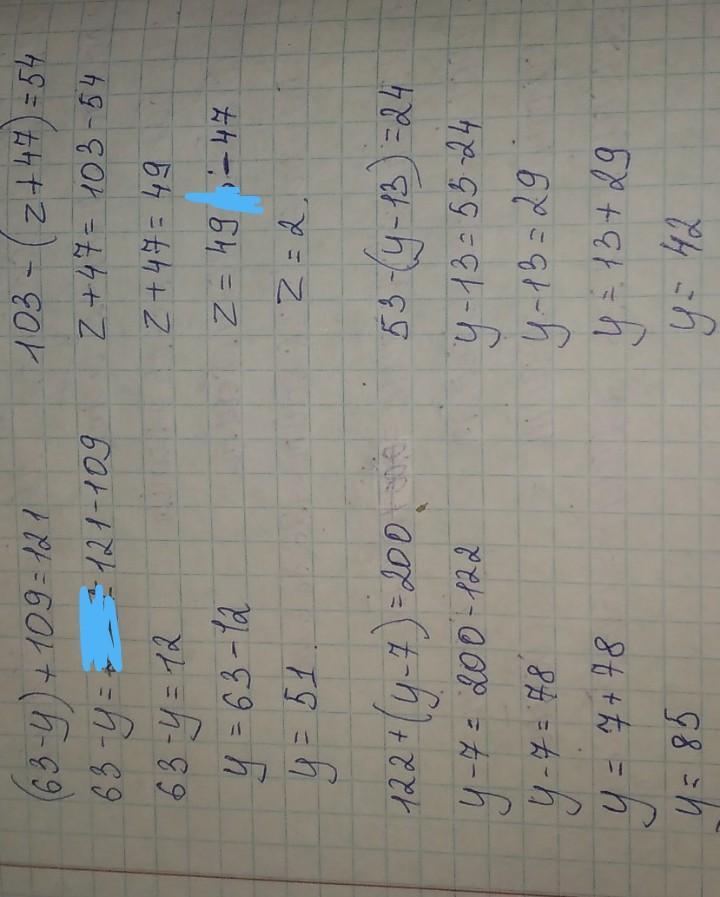 (63-y)+109=121
63-y= 121-109
63-y=12
y=63-12
y=51.
103-(z+47)=54
z+47=103-54
z+47=49
z=49 -47
z=2.
122+(y-7)=200
y-7=200-122
y-7=78
y=7+78
y=85
53-(y-13)=24
y-13=53-24
y-13=29
y=13+29
y=42